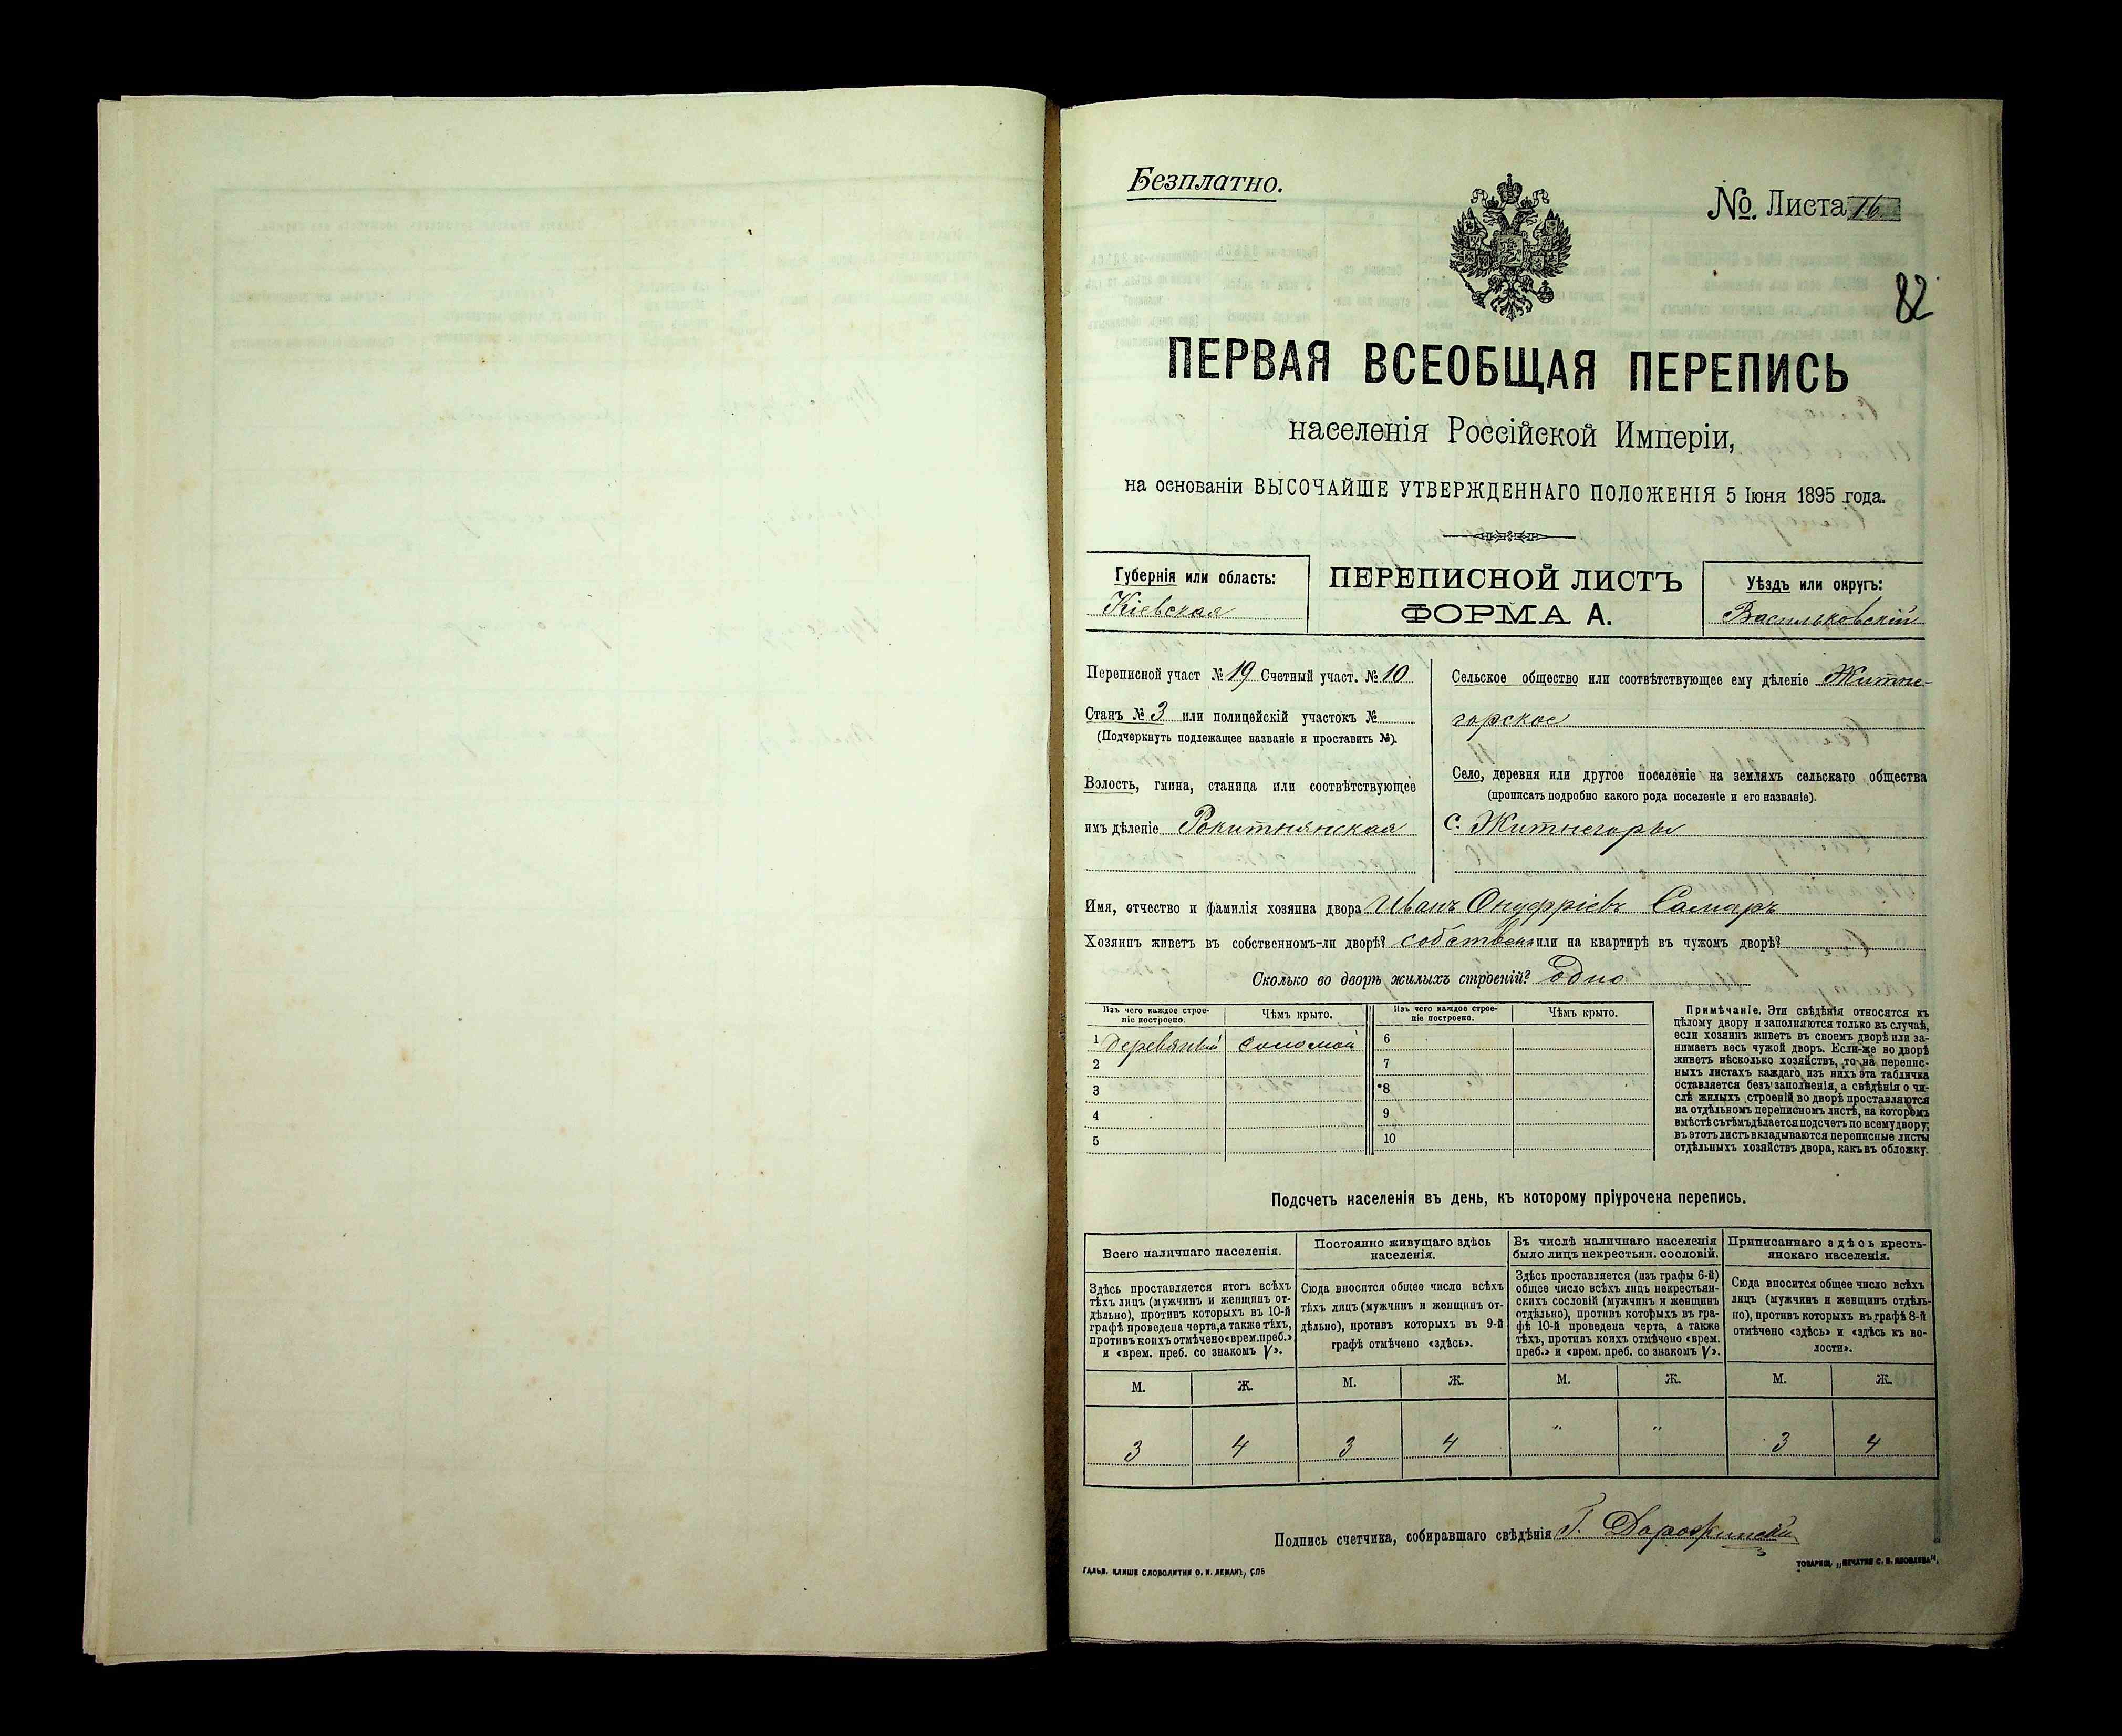 Безплатно.
№. Листа 16
82
ПЕРВАЯ ВСЕОБЩАЯ ПЕРЕПИСЬ
населенія Россійской Имперіи,
на основаніи ВЫСОЧАЙШЕ УТВЕРЖДЕННАГО ПОЛОЖЕНІЯ 5 Іюня 1895 года.
Губернія или область:
Кіевская
ПЕРЕПИСНОЙ ЛИСТЪ
ФОРМА А.
Уѣздъ или округъ:
Васильковскій
Переписной участ № 19 Счетный участ. № 10
Станъ № 3 или полицейскій участокъ №
(Подчеркнуть подлежащее названіе и проставить №).
Волость, гмина, станица или соотвѣтствующее
имъ дѣленіе Рокитнянская
Сельское общество или соотвѣтствующее ему дѣленіе Житне-
горское
Село, деревня или другое поселеніе на земляхъ сельскаго общества
(прописать подробно какого рода поселеніе и его названіе).
с. Житнегоры
Имя, отчество и фамилія хозяина двора Иванъ Онуфріевъ Самаръ
Хозяинъ живетъ въ собственномъ-ли дворѣ? собствен или на квартирѣ въ чужомъ дворѣ?
Сколько во дворѣ жилыхъ строеній? одно
Изъ чего каждое строе-
ніе построено.
Чѣмъ крыто.
Изъ чего каждое строе-
ніе построено.
Чѣмъ крыто.
1 деревяный соломой 6
2 7
3 8
4 9
5 10
Примѣчаніе. Эти свѣдѣнія относятся къ
цѣлому двору и заполняются только въ случаѣ,
если хозяинъ живетъ въ своемъ дворѣ или за-
нимаетъ весь чужой дворъ. Если-же во дворѣ
живетъ нѣсколько хозяйствъ, то на перепис-
ныхъ листахъ каждаго изъ нихъ эта табличка
оставляется безъ заполненія, а свѣдѣнія о чи-
слѣ жилыхъ строеній во дворѣ проставляются
на отдѣльномъ переписномъ листѣ, на которомъ
вмѣстѣ съ тѣмъ дѣлается подсчетъ по всему двору;
въ этотъ листъ вкладываются переписные листы
отдѣльныхъ хозяйствъ двора, какъ въ обложку.
Подсчетъ населенія въ день, къ которому пріурочена перепись.
Всего наличнаго населенія.
Здѣсь проставляется итогъ всѣхъ
тѣхъ лицъ (мужчинъ и женщинъ от-
дѣльно), противъ которыхъ въ 10-й
графѣ проведена черта, а также тѣхъ,
противъ коихъ отмѣчено «врем. преб.»
и «врем. преб. со знакомъ V».
Постоянно живущаго здѣсь
населенія.
Сюда вносится общее число всѣхъ
тѣхъ лицъ (мужчинъ и женщинъ от-
дѣльно), противъ которыхъ въ 9-й
графѣ отмѣчено «здѣсь».
Въ числѣ наличнаго населенія
было лицъ некрестьян. сословій.
Здѣсь проставляется (изъ графы 6-й)
общее число всѣхъ лицъ некрестьян-
скихъ сословій (мужчинъ и женщинъ
отдѣльно), противъ которыхъ въ гра-
фѣ 10-й проведена черта, а также
тѣхъ, противъ коихъ отмѣчено «врем.
преб.» и «врем. преб. со знакомъ V».
Приписаннаго здѣсь кресть-
янскаго населенія.
Сюда вносится общее число всѣхъ
лицъ (мужчинъ и женщинъ отдѣль-
но), противъ которыхъ въ графѣ 8-й
отмѣчено «здѣсь» и «здѣсь къ во-
лости».
М. Ж. М. Ж. М. Ж. М. Ж.
3 4 3 4 " " 3 4
Подпись счетчика, собиравшаго свѣдѣнія Г. Дорожинскій
ГАЛЬВ. КЛИШЕ СЛОВОЛИТНИ О. И. ЛЕМАНЪ, СПБ
ТОВАРИЩ. „ПЕЧАТНЯ С. П. ЯКОВЛЕВА".